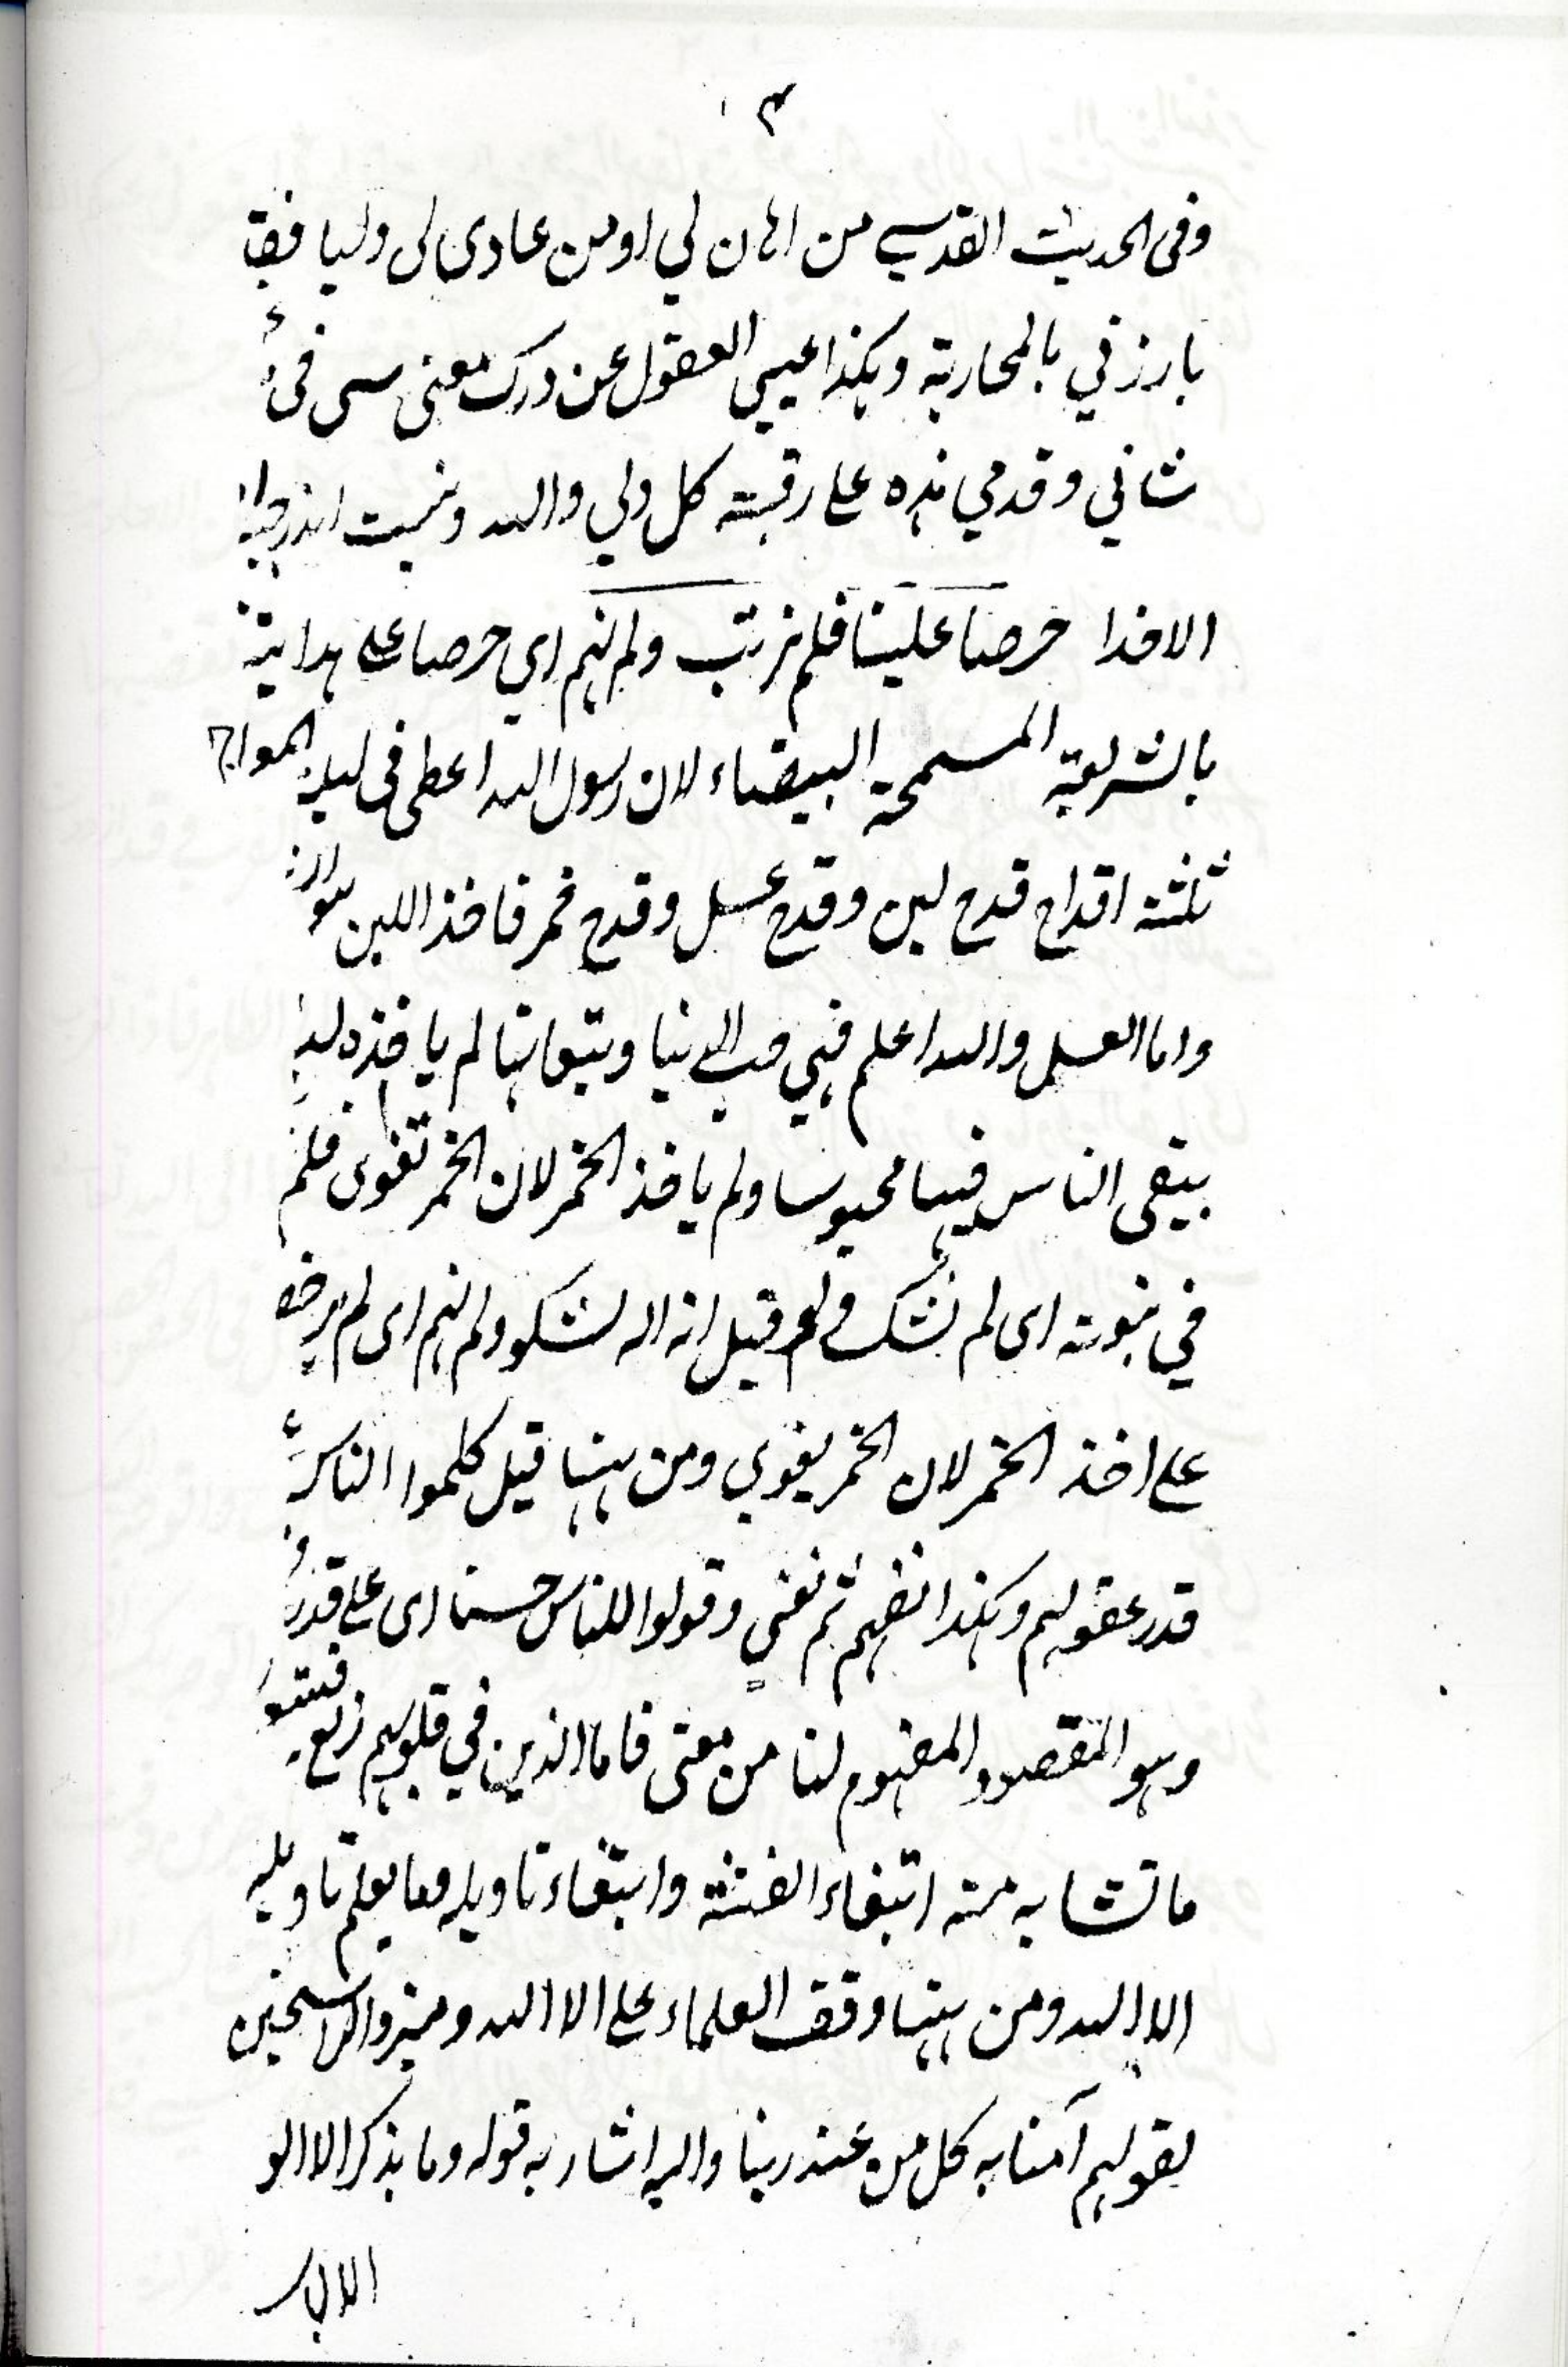 ۴
وفى الحديث القدسي من اهان لي اومن عادى لى وليا فقد
بارزني بالمحاربة وهكذا عيي العقول عن درك معنى سرى فى
شاني وقدمي هذه على رقبة كل ولي والله ونسيت
الاخذا حرصا علينا فلم نرتب ولم نهم اي حرصا على هداية
بالشريعة السمحة البيضاء لان رسول الله اعطى فى ليلة المعراج
ثلثة اقداح قدح لبن وقدح عسل وقدح خمر فاخذ اللبن
واما العسل والله اعلم فهي حب الدنيا وبتبعاتها لم ياخذه لئلا
يبقى الناس فيها محبوسا ولم ياخذ الخمر لان الخمر تغوى فلم
في نبوته اى لم نشك قيل انه اله لشكو ولم نهم اى لم يرض
على اخذ الخمر لان الخمر يغوي ومن ههنا قيل كلموا الناس
قدر عقولهم وهكذا نفهم ثم نفني وقولوا للناس حسنا اى على قدر
وهو المقصود المفهوم لنا من معنى فاما الذين في قلوبهم زيغ فيتبعون
ما تشابه منه ابتغاء الفتنة وابتغاء تاويله وما يعلم تاويله
الا الله ومن ههنا وقف العلماء على الا الله وميزوا الراسخين
بقولهم آمنا به كل من عند ربنا واليه اشار به قوله وما يذكر الا اولو
الالباب